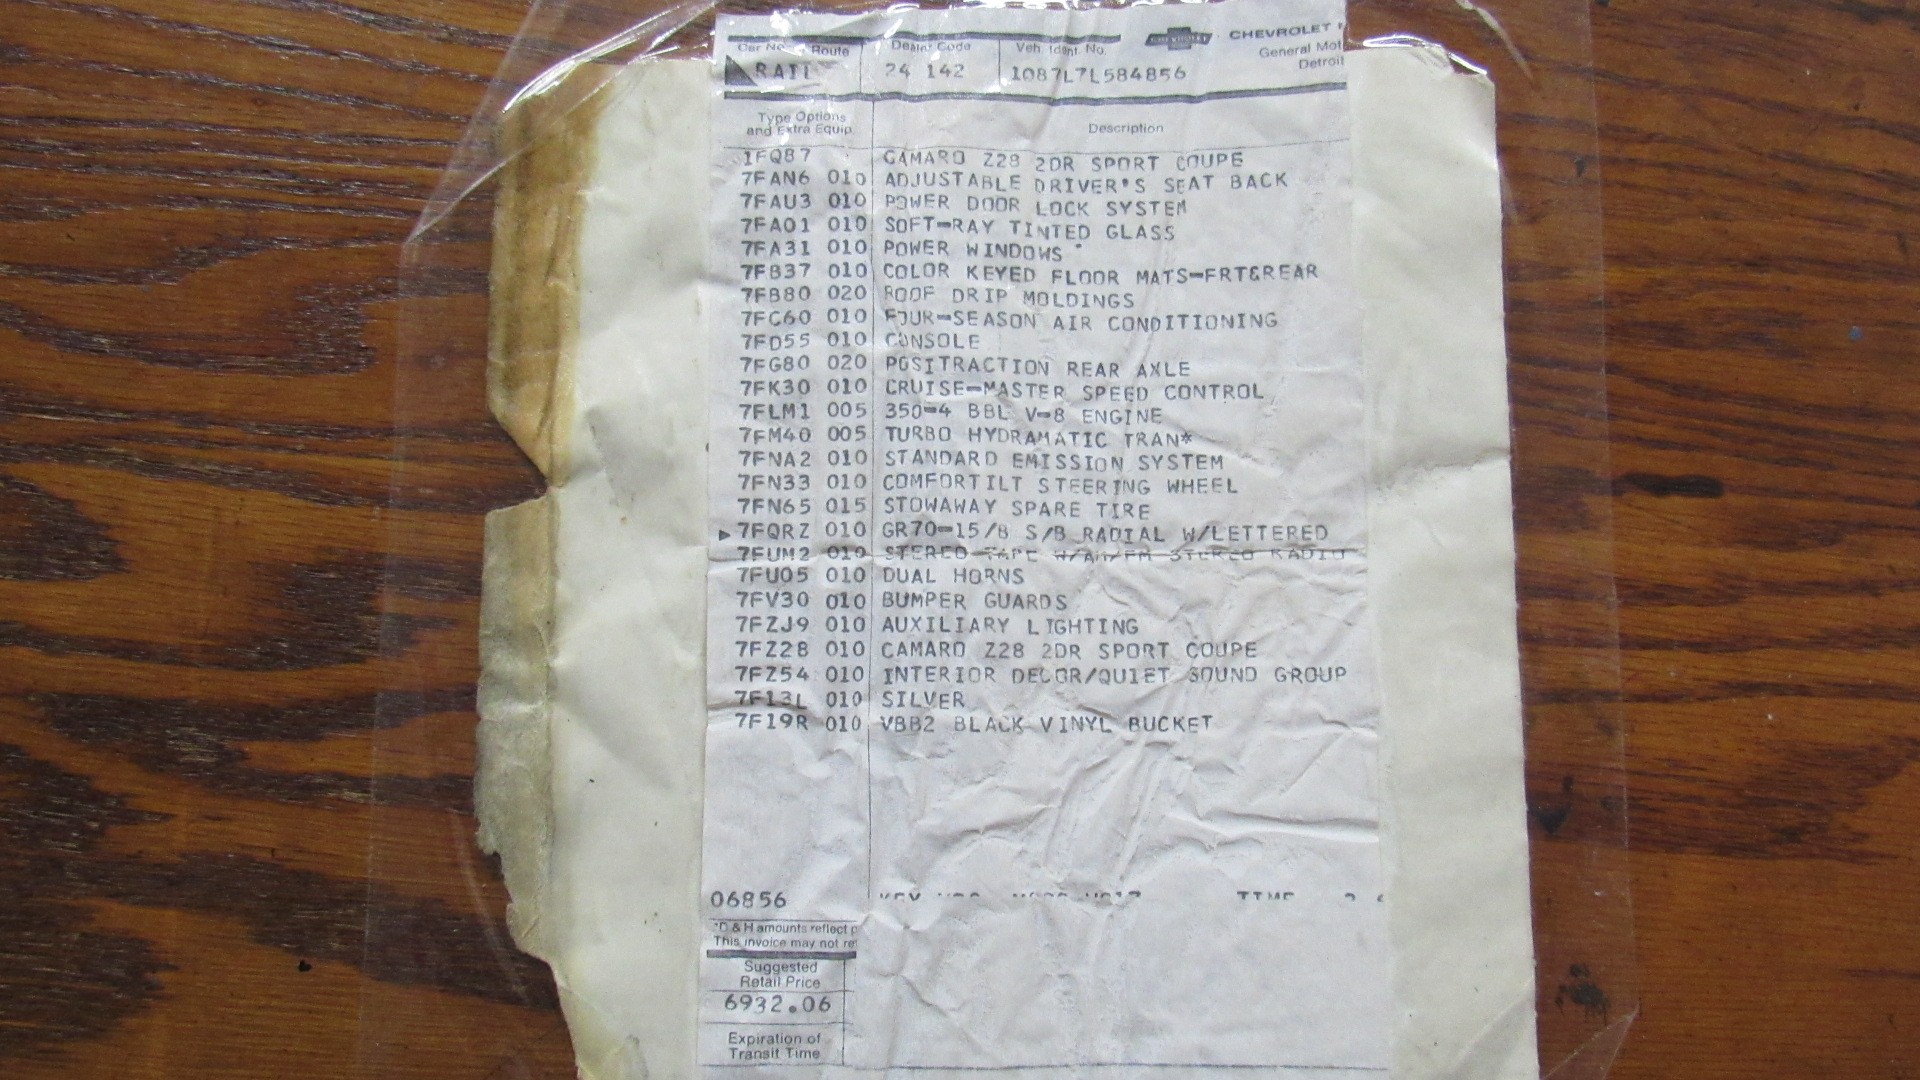 CHEVROLET
Car No. Route Dealer Code Veh. Ident. No. CHEVROLET
General Mot
Detroit
RAIL 24 142 1Q87L7L584856
Type Options
and Extra Equip. Description
1FQ87 CAMARO Z28 2DR SPORT COUPE
7FAN6 010 ADJUSTABLE DRIVER'S SEAT BACK
7FAU3 010 POWER DOOR LOCK SYSTEM
7FA01 010 SOFT-RAY TINTED GLASS
7FA31 010 POWER WINDOWS
7FB37 010 COLOR KEYED FLOOR MATS-FRT&REAR
7FB80 020 ROOF DRIP MOLDINGS
7FC60 010 FOUR-SEASON AIR CONDITIONING
7FD55 010 CONSOLE
7FG80 020 POSITRACTION REAR AXLE
7FK30 010 CRUISE-MASTER SPEED CONTROL
7FLM1 005 350-4 BBL V-8 ENGINE
7FM40 005 TURBO HYDRAMATIC TRAN*
7FNA2 010 STANDARD EMISSION SYSTEM
7FN33 010 COMFORTILT STEERING WHEEL
7FN65 015 STOWAWAY SPARE TIRE
7FQRZ 010 GR70-15/B S/B RADIAL W/LETTERED
7FUM2 010 STEREO TAPE W/AM/FM STEREO RADIO
7FU05 010 DUAL HORNS
7FV30 010 BUMPER GUARDS
7FZJ9 010 AUXILIARY LIGHTING
7FZ28 010 CAMARO Z28 2DR SPORT COUPE
7FZ54 010 INTERIOR DECOR/QUIET SOUND GROUP
7F13L 010 SILVER
7F19R 010 VBB2 BLACK VINYL BUCKET
06856 KEY TIME
*D & H amounts reflect p
This invoice may not re
Suggested
Retail Price
6932.06
Expiration of
Transit Time